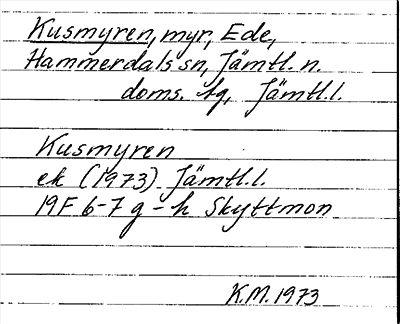 Kusmyren, myr, Ede,
Hammerdals sn, Jämtl. n.
doms. tg, Jämtl.l.
Kusmyren
ek (1973) Jämtl.l.
19F 6-7 g-h Skyttmon
K.M. 1973